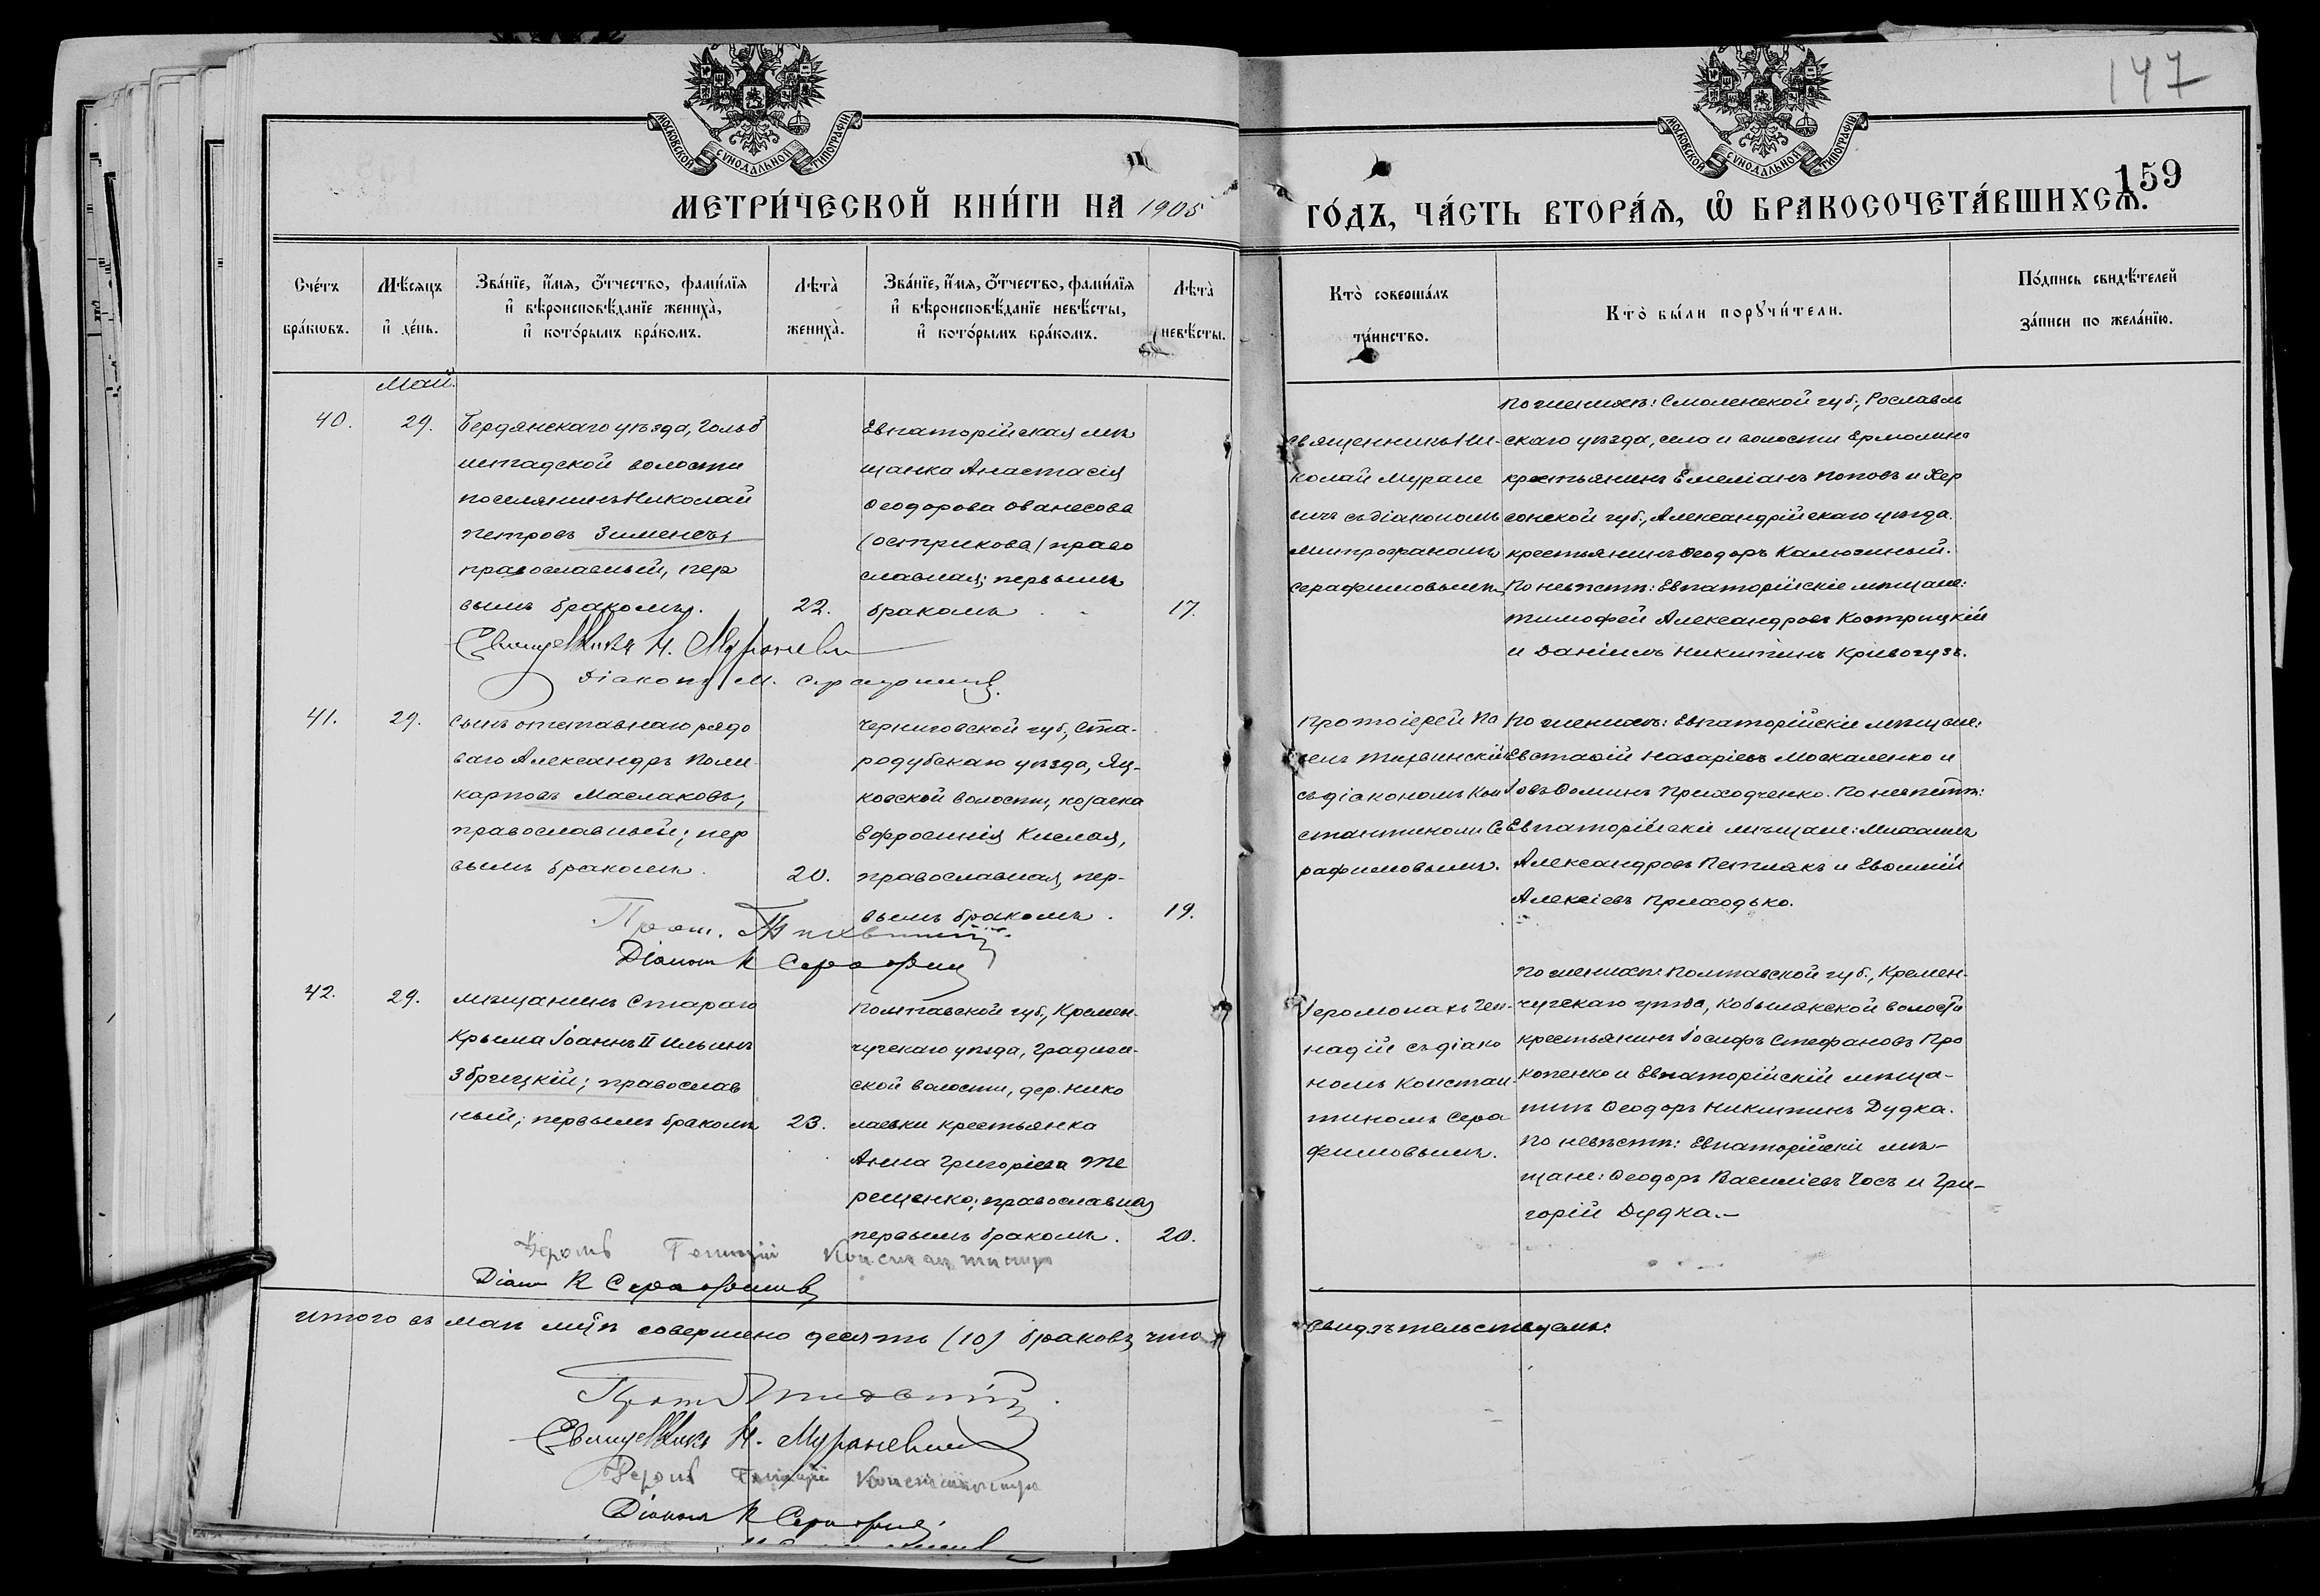 МОСКОВСКОЙ СѴНОДАЛЬНОЙ ТИПОГРАФІИ
МОСКОВСКОЙ СѴНОДАЛЬНОЙ ТИПОГРАФІИ
147
159
МЕТРИ́ЧЕСКОЙ КНИ́ГИ НА 1905
ГО́ДЪ, ЧА́СТЬ ВТОРА́Я, Ѡ҆ БРАКОСОЧЕТА́ВШИХСЯ.
Сче́тъ бра́кѡвъ.
Мѣ́сяцъ и҆ де́нь.
Зва́нїе, и҆́мя, ѻ҆́тчество, фами́лїя
и҆ вѣроисповѣ́данїе жениха̀,
и҆ кото́рымъ бра́комъ.
Лѣта̀ жениха̀.
Зва́нїе, и҆́мя, ѻ҆́тчество, фами́лїя
и҆ вѣроисповѣ́данїе невѣ́сты,
и҆ кото́рымъ бра́комъ.
Лѣта̀ невѣ́сты.
Кто̀ соверша́лъ
та́инство.
Кто̀ бы́ли порꙋчи́тели.
По́дпись свидѣ́телей
за́писи по жела́нїю.
Май.
40.
29.
Бердянскаго уѣзда, Гольб
штадской волости
поселянинъ Николай
Петровъ Зименсъ,
православный, пер
вымъ бракомъ.
22.
Евпаторійская мѣ
щанка Анастасія
Ѳеодорова Ованесова
(Острикова) право
славная; первымъ
бракомъ
17.
Священникъ Ни-
колай Муране
вичъ съ діакономъ
Митрофаномъ
Серафимовымъ
По женихѣ: Смоленской губ., Рославль
скаго уѣзда, села и волости Ермолино
крестьянинъ Емеліанъ Поповъ и Хер
сонской губ., Александрійскаго уѣзда
крестьянинъ Ѳеодоръ Калюжный.
По невѣстѣ: Евпаторійскіе мѣщане:
Тимофей Александровъ Кострицкій
и Даніилъ Никитинъ Кривогузъ.
Священникъ Н. Мураневи
Діаконъ М. Серафимовъ.
41.
29.
Сынъ отставнаго рядо
ваго Александръ Поли
карповъ Маслаковъ,
православный; пер
вымъ бракомъ.
20.
Черниговской губ., Ста-
родубскаго уѣзда, Яц-
ковской волости, козачка
Ефросинія Кислая,
православная, пер-
вымъ бракомъ.
19.
Протоіерей Па
велъ Тихвинскій
съ діакономъ Кон
стантиномъ Се
рафимовымъ.
По женихѣ: Евпаторійскіе мѣщане:
Евстафій Назаріевъ Москаленко и
Іовъ Ѳоминъ Приходченко. По невѣстѣ:
Евпаторійскіе мѣщане: Михаилъ
Александровъ Петлякъ и Евфимій
Алексіевъ Приходько.
Прот. Тихвинскій
Діаконъ К Серафим
42.
29.
Мѣщанинъ Стараго
Крыма Іоаннъ II Ильинъ
Збрицкій; православ
ный; первымъ бракомъ
23.
Полтавской губ., Кремен-
чугскаго уѣзда, Градиж-
ской волости, дер. Нико
лаевки крестьянка
Анна Григоріева Те
рещенко; православная
первымъ бракомъ.
20.
Іеромонахъ Ген-
надій съ діако
номъ Констан-
тиномъ Сера
фимовымъ.
По женихѣ: Полтавской губ., Кремен-
чугскаго уѣзда, Кобылякской волости
крестьянинъ Іосифъ Стефановъ Про
копенко и Евпаторійскій мѣща-
нинъ Ѳеодоръ Никитинъ Дудка.
По невѣстѣ: Евпаторійскіе мѣ-
щане: Ѳеодоръ Василіевъ Чосъ и Гри-
горій Дудка.-
Іеромъ Геннадій
Діакон К Серафимовъ
Итого въ маѣ мцѣ совершено десять (10) браковъ, что
свидѣтельствуемъ:
Прот Тихвинскій
Священникъ Н. Мураневич
Іеромъ Геннадій
Діаконъ К Серафим